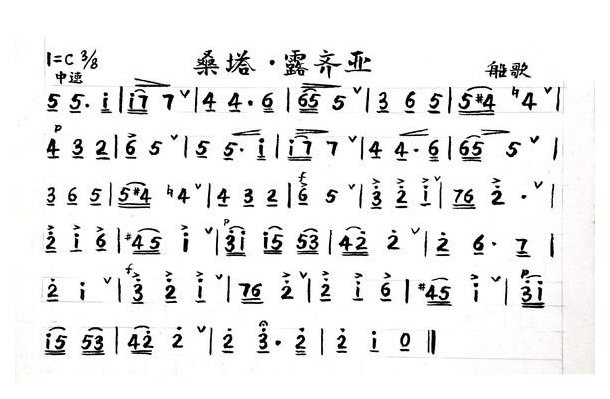 1=C 3/8
桑塔·露齐亚
中速
船歌
5 5· i | i7 7 ∨ | 4 4· 6 | 65 5 ∨ | 3 6 5 | 5#4 ♮4 ∨ |
p
4 3 2 | 6 5 ∨ | 5 5· i | i7 7 ∨ | 4 4· 6 | 65 5 ∨ |
f
3 6 5 | 5#4 ♮4 ∨ | 4 3 2 | 6 5 ∨ | 3 2 i ∨ | 76 2 · ∨ |
p
2 i 6 | #45 i ∨ | 3i i5 53 | 42 2 ∨ | 2 6· 7 |
f p
2 i ∨ | 3 2 i ∨ | 76 2 ∨ | 2 i 6 | #45 i ∨ | 3i |
i5 53 | 42 2 ∨ | 2 3· 2 | 2 i 0 ‖